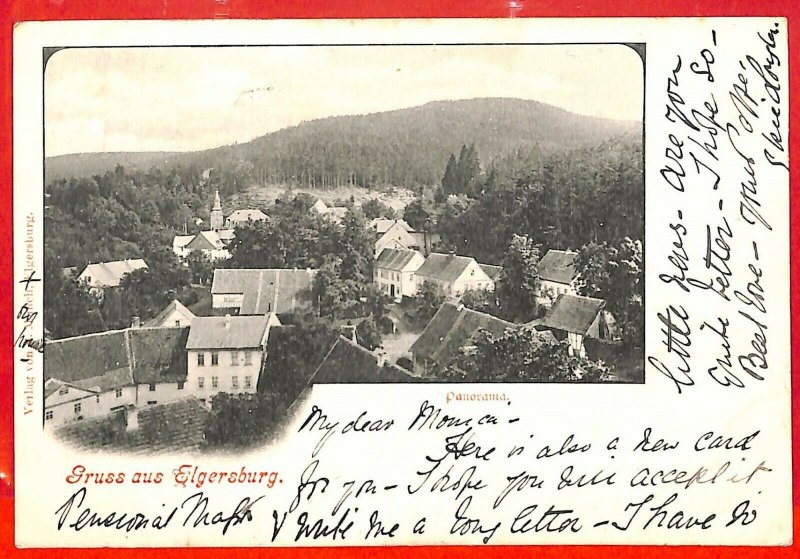 Verlag von Elgersburg.
Panorama.
Gruss aus Elgersburg.
My dear Monica -
Here is also a new card
for you - I hope you will accept it
& write me a long letter - I have so
little news - Are you
quite better - I hope so -
Best love - Your
Pensionat
our
house